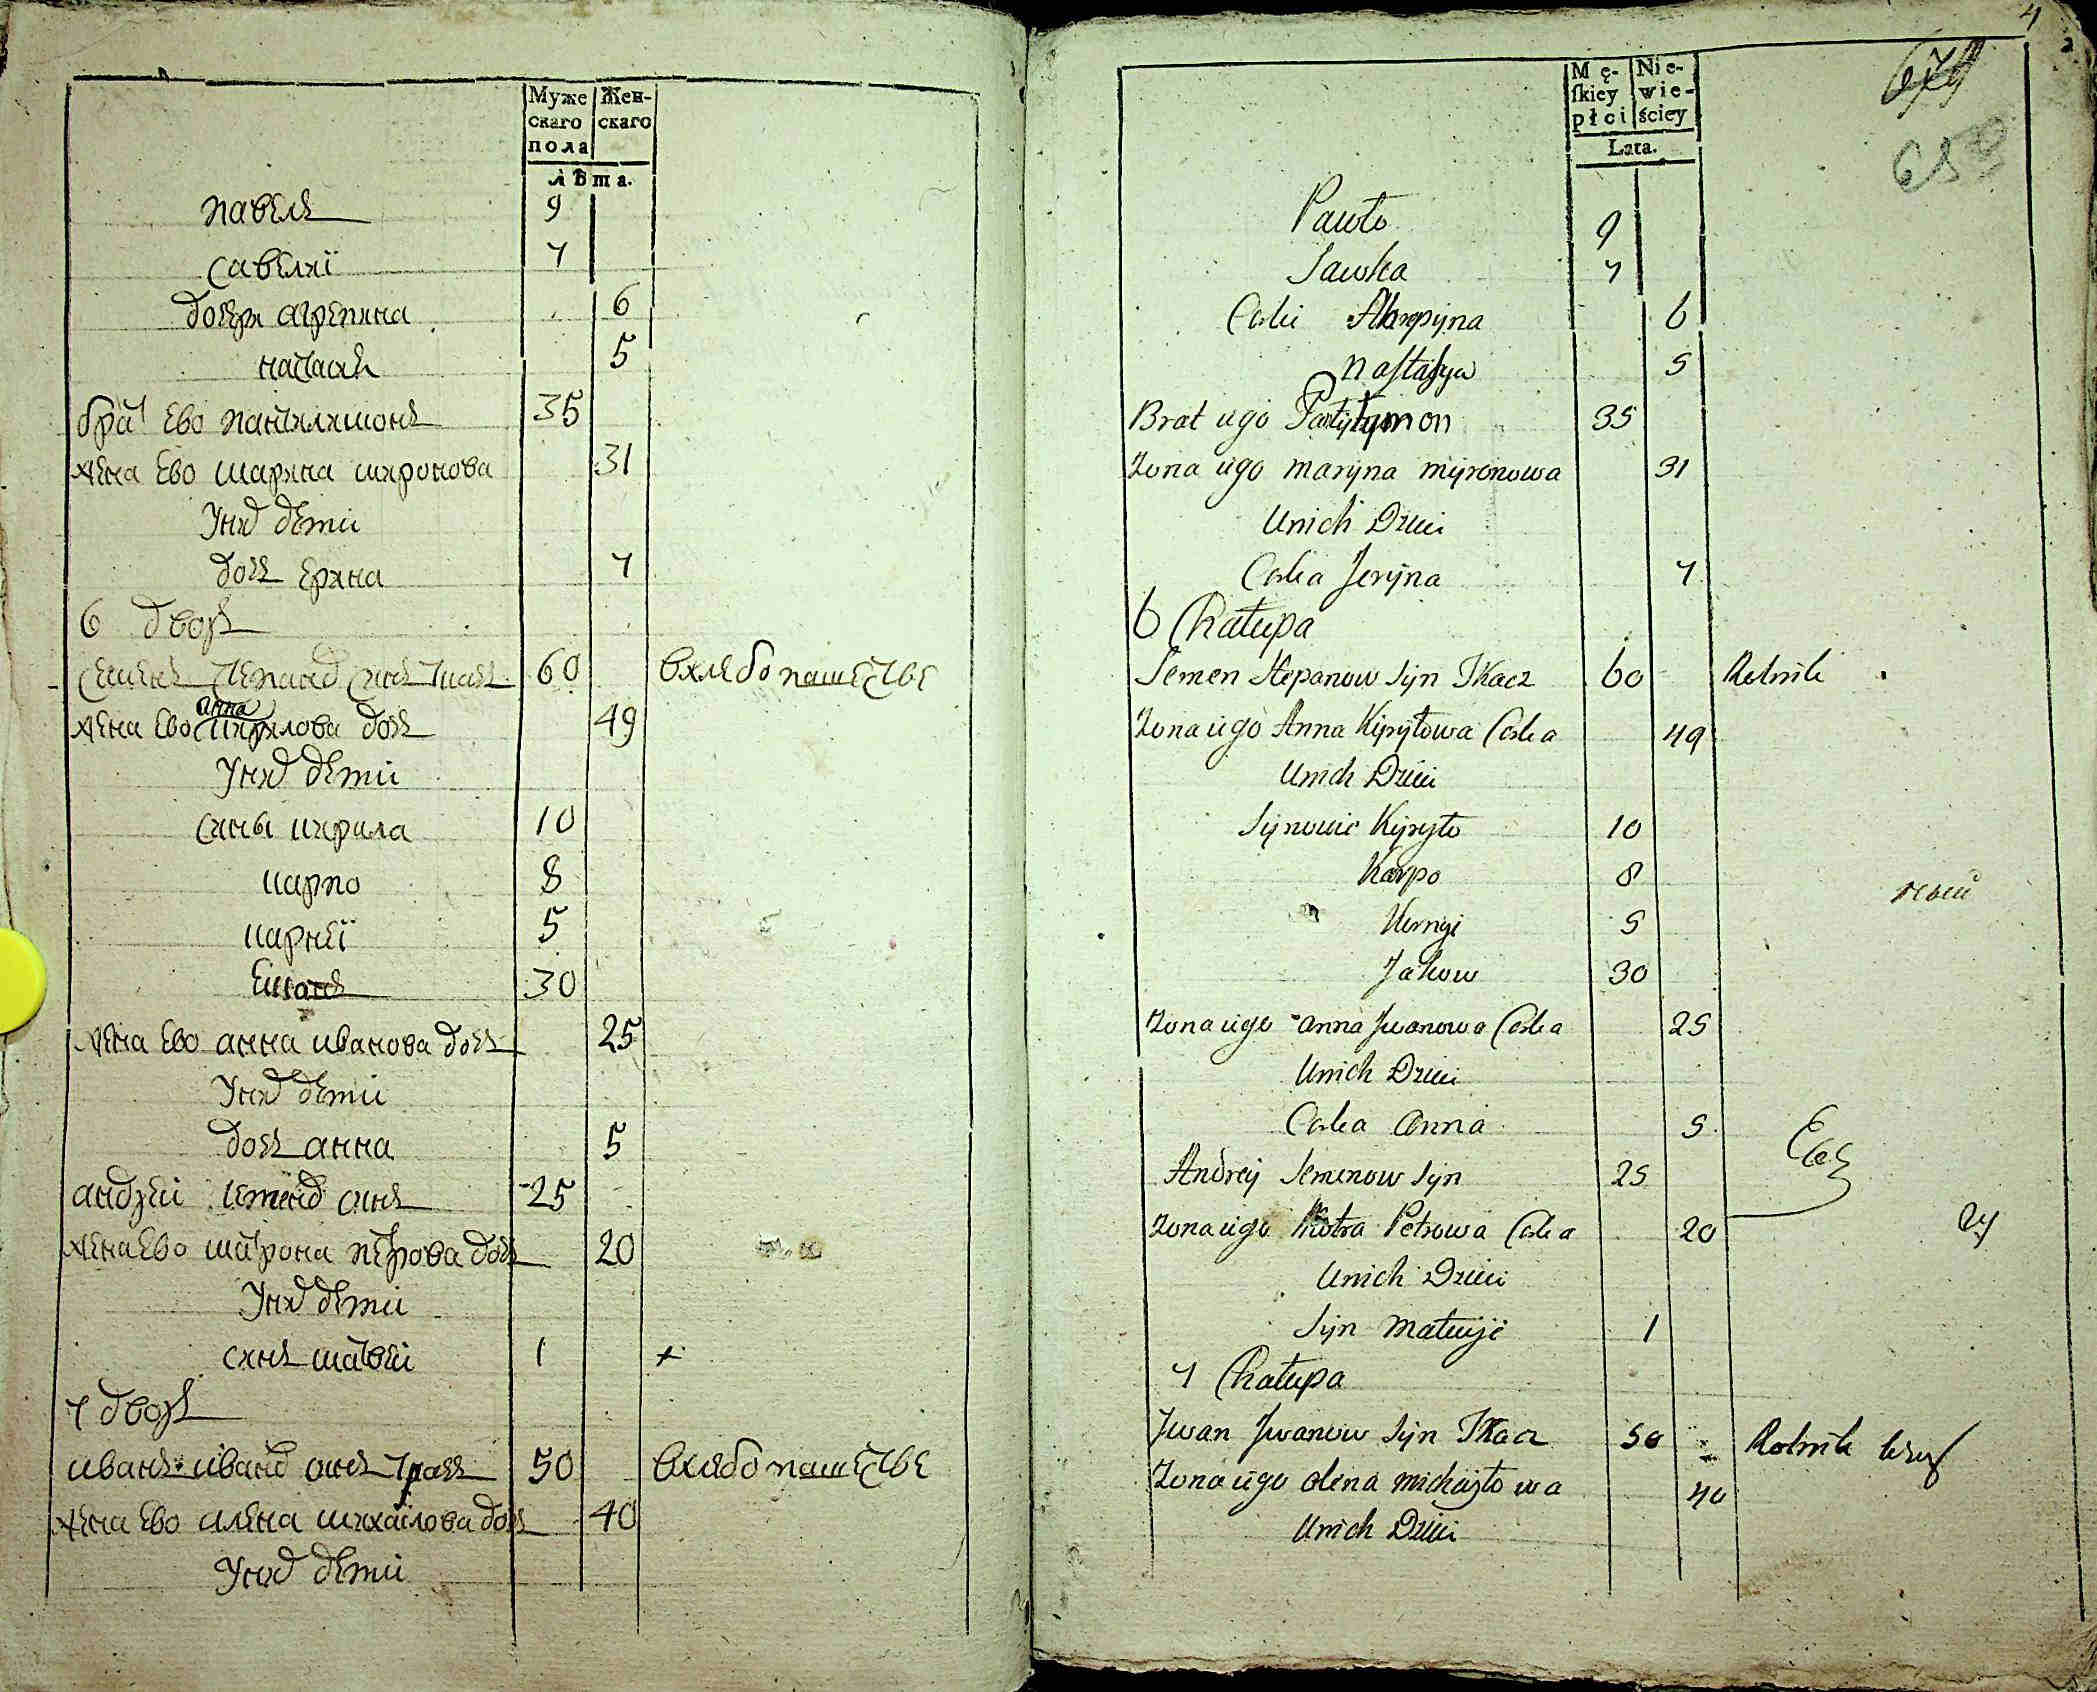 Муже
скаго
пола
Жен-
скаго
лѣта.
павелъ 9
савелиї 7
дочери агрепина 6
настася 5
братъ ево пантилимонъ 35
жена ево марина миронова 31
У них дети
дочь ерина 7
6 дворъ
семенъ степанов синъ ткачъ 60 в хлебопашестве
анна
жена ево кирилова дочь 49
У них дети
сины кирила 10
карпо 8
карнеї 5
30
жена ево анна иванова дочь 25
У них дети
дочь анна 5
андреи семенов синъ 25
жена ево матрона петрова дочь 20
У них дети
синъ матвеи 1 +
7 дворъ
иванъ иванов синъ ткачъ 50 в хлебопашестве
жена ево илена михаилова дочь 40
У них дети
4
2
Mę-
ſkiey
płci
Nie-
wie-
ściey
Lata.
Pawło 9
Sawka 7
Corki Ahrepijna 6
Nastasya 5
Brat iego Pantylymon 35
Zona iego Maryna Myronowa 31
U nich Dzieci
Corka Jeryna 7
6 Chałupa
Semen Stepanow Syn Tkacz 60 Rolnik
Zona iego Anna Kiryłowa Corka 49
U nich Dzieci
Synowie Kiryło 10
Karpo 8
Kernyi 5
Jakow 30
Zona iego Anna Jwanowa Corka 25
U nich Dzieci
Corka Anna 5
Andrey Semenow Syn 25
Zona iego Motra Petrowa Corka 20
U nich Dzieci
Syn Matwije 1
7 Chałupa
Jwan Jwanow Syn Tkacz 50 Rolnik
Zona iego Olena Michayłowa 40
U nich Dzieci